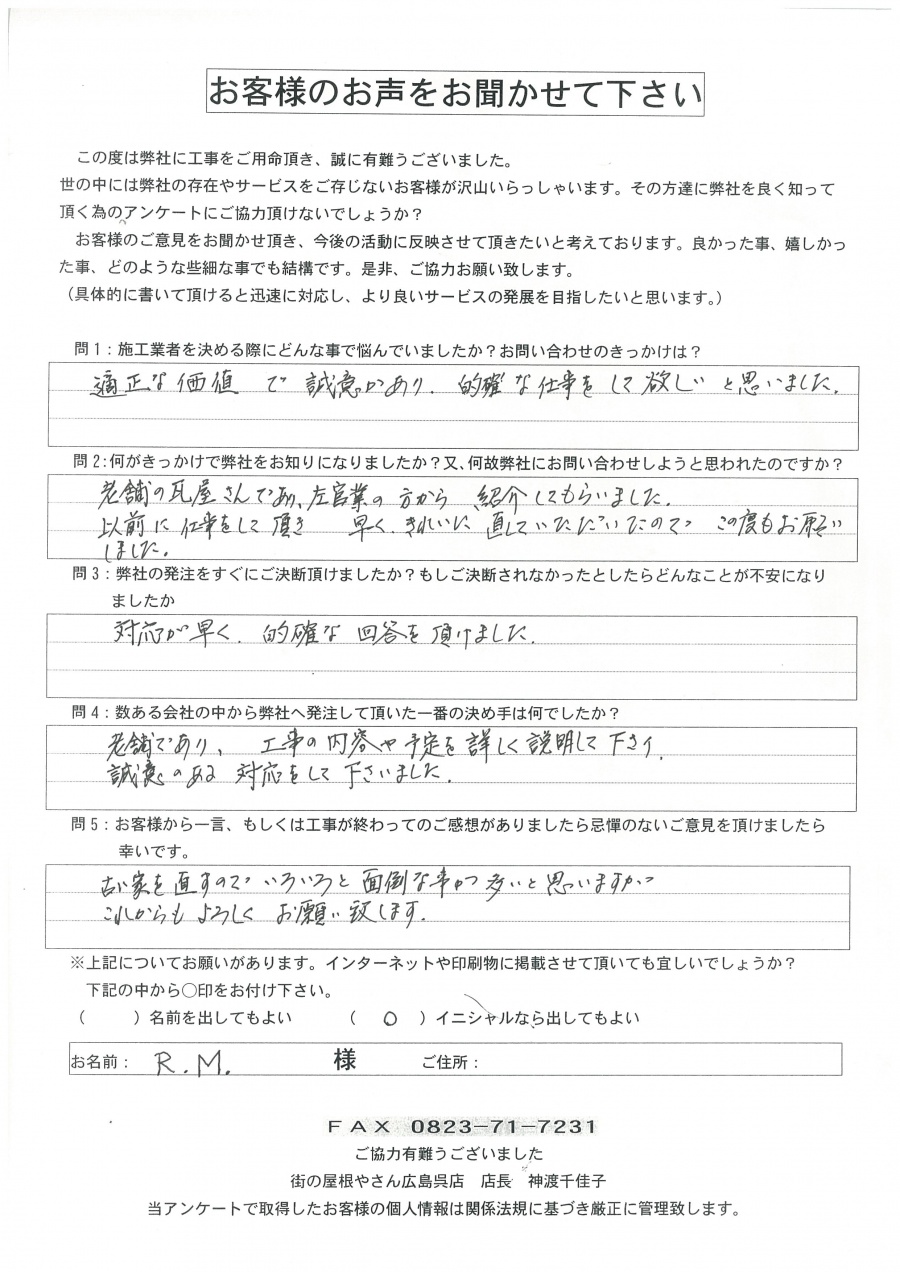 お客様のお声をお聞かせて下さい
この度は弊社に工事をご用命頂き、誠に有難うございました。
世の中には弊社の存在やサービスをご存じないお客様が沢山いらっしゃいます。その方達に弊社を良く知って
頂く為のアンケートにご協力頂けないでしょうか？
お客様のご意見をお聞かせ頂き、今後の活動に反映させて頂きたいと考えております。良かった事、嬉しかっ
た事、どのような些細な事でも結構です。是非、ご協力お願い致します。
（具体的に書いて頂けると迅速に対応し、より良いサービスの発展を目指したいと思います。）
問１：施工業者を決める際にどんな事で悩んでいましたか？お問い合わせのきっかけは？
適正な価値で誠意があり、的確な仕事をして欲しいと思いました。
問２：何がきっかけで弊社をお知りになりましたか？又、何故弊社にお問い合わせしようと思われたのですか？
老舗の瓦屋さんであり、左官業の方から紹介してもらいました。
以前に仕事をして頂き 早く、きれいに直していただいたので この度もお願い
しました。
問３：弊社の発注をすぐにご決断頂けましたか？もしご決断されなかったとしたらどんなことが不安になり
ましたか
対応が早く、的確な回答を頂けました。
問４：数ある会社の中から弊社へ発注して頂いた一番の決め手は何でしたか？
老舗であり、工事の内容や予定を詳しく説明して下さり
誠意のある対応をして下さいました。
問５：お客様から一言、もしくは工事が終わってのご感想がありましたら忌憚のないご意見を頂けましたら
幸いです。
古い家を直すので いろいろと面倒な事が多いと思いますが
これからもよろしくお願い致します。
※上記についてお願いがあります。インターネットや印刷物に掲載させて頂いても宜しいでしょうか？
下記の中から〇印をお付け下さい。
（　　）名前を出してもよい　　（　○　）イニシャルなら出してもよい
お名前： R.M. 様　ご住所：
ＦＡＸ 0823-71-7231
ご協力有難うございました
街の屋根やさん広島呉店　店長　神渡千佳子
当アンケートで取得したお客様の個人情報は関係法規に基づき厳正に管理致します。